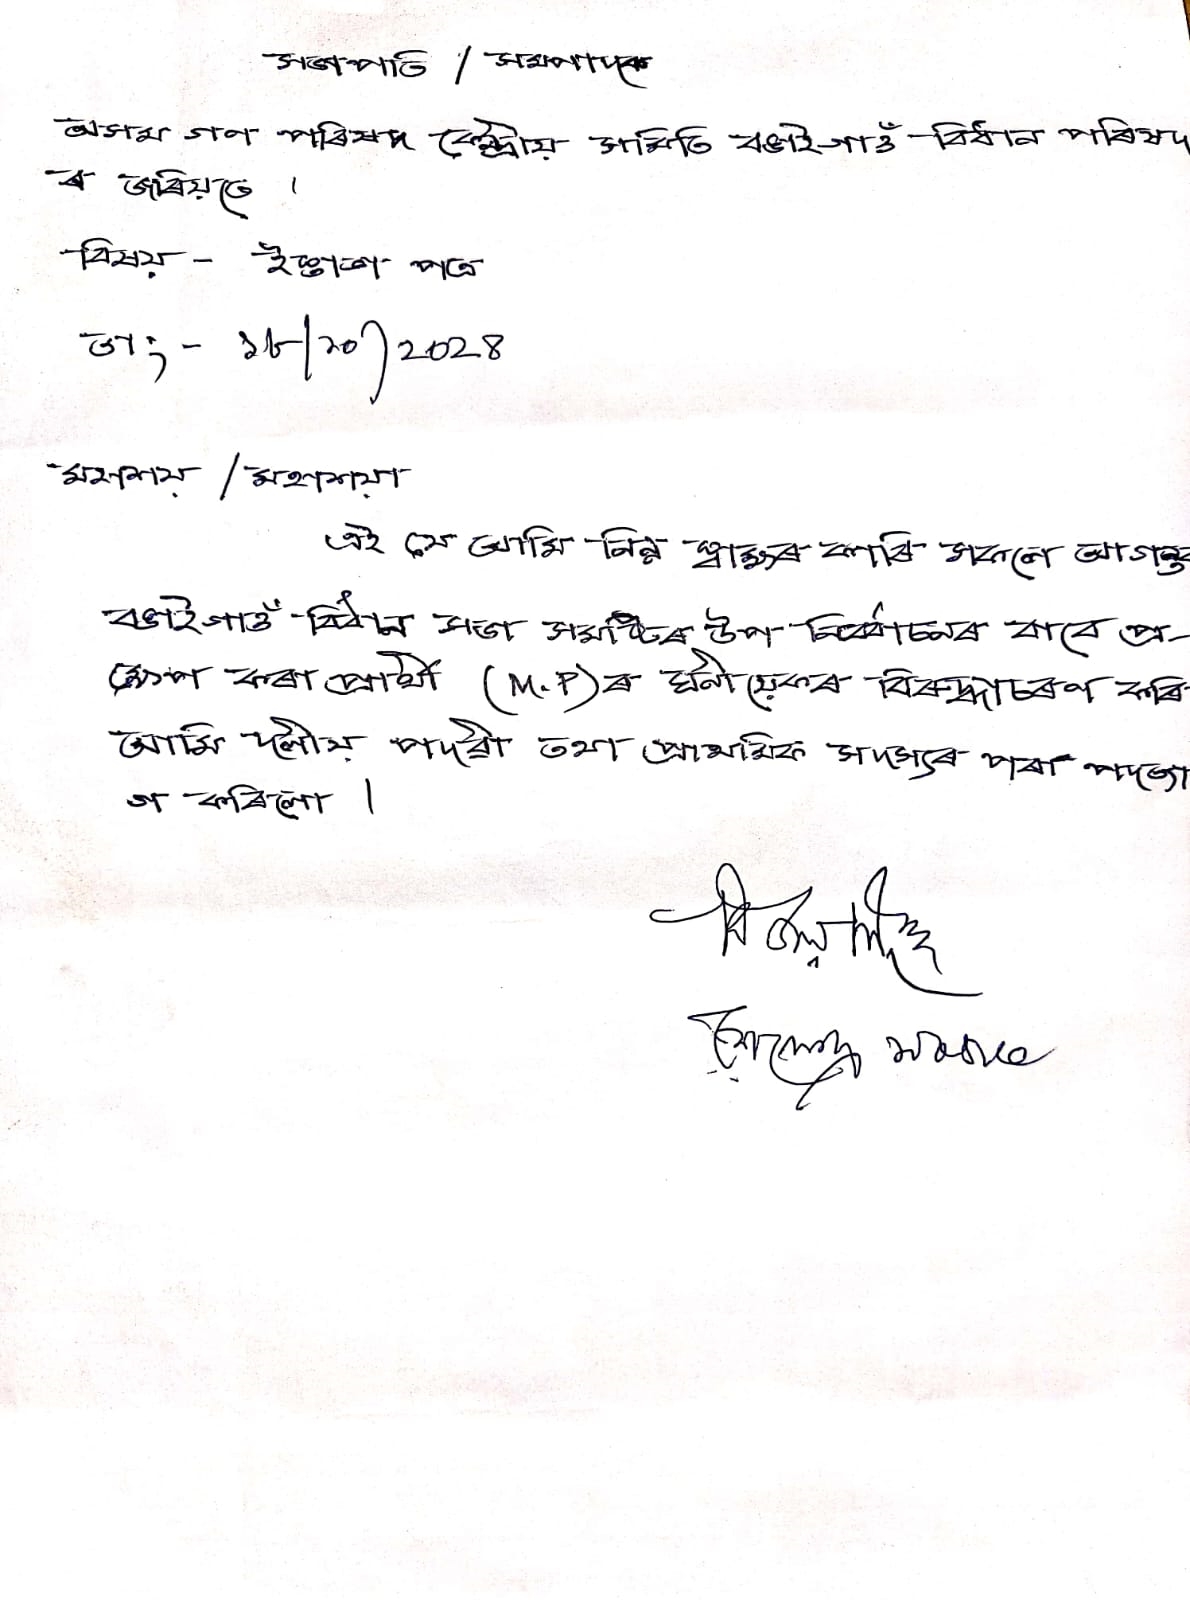 সভাপতি / সম্পাদক
অসম গণ পৰিষদ কেন্দ্ৰীয় সমিতি বঙাইগাওঁ বিধান পৰিষদ
ৰ জৰিয়তে ।
বিষয় - ইস্তাফা পত্ৰ
তাং - ১৮/১০/202৪
মহাশয় / মহাশয়া
এই যে আমি নিম্ন স্বাক্ষৰ কাৰি সকলে আগন্তুক
বঙাইগাওঁ বিধান সভা সমষ্টিৰ উপ নিৰ্বাচনৰ বাবে প্ৰ-
ক্ষেপ কৰা প্ৰাৰ্থী (M.P)ৰ ঘনীয়েকৰ বিৰুদ্ধাচৰণ কৰি
আমি দলীয় পদবী তথা প্ৰাথমিক সদস্যৰ পৰা পদত্যা
গ কৰিলো ।